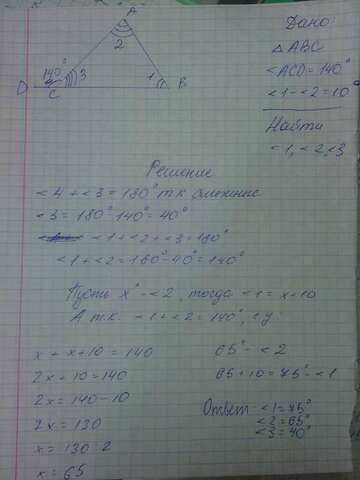 A
2
140°
3
1
D
C
B
Дано:
△ABC
<ACD = 140°
<1 - <2 = 10°
Найти
<1, <2, <3
Решение
<4 + <3 = 180° т.к смежные
<3 = 180° - 140° = 40°
<1 + <2 + <3 = 180°
<1 + <2 = 180° - 40° = 140°
Пусть x° - <2, тогда <1 = x + 10
А т.к. <1 + <2 = 140°, с.у.
x + x + 10 = 140
2x + 10 = 140
2x = 140 - 10
2x = 130
x = 130 : 2
x = 65
65° - <2
65 + 10 = 75° - <1
Ответ <1 = 75°
<2 = 65°
<3 = 40°